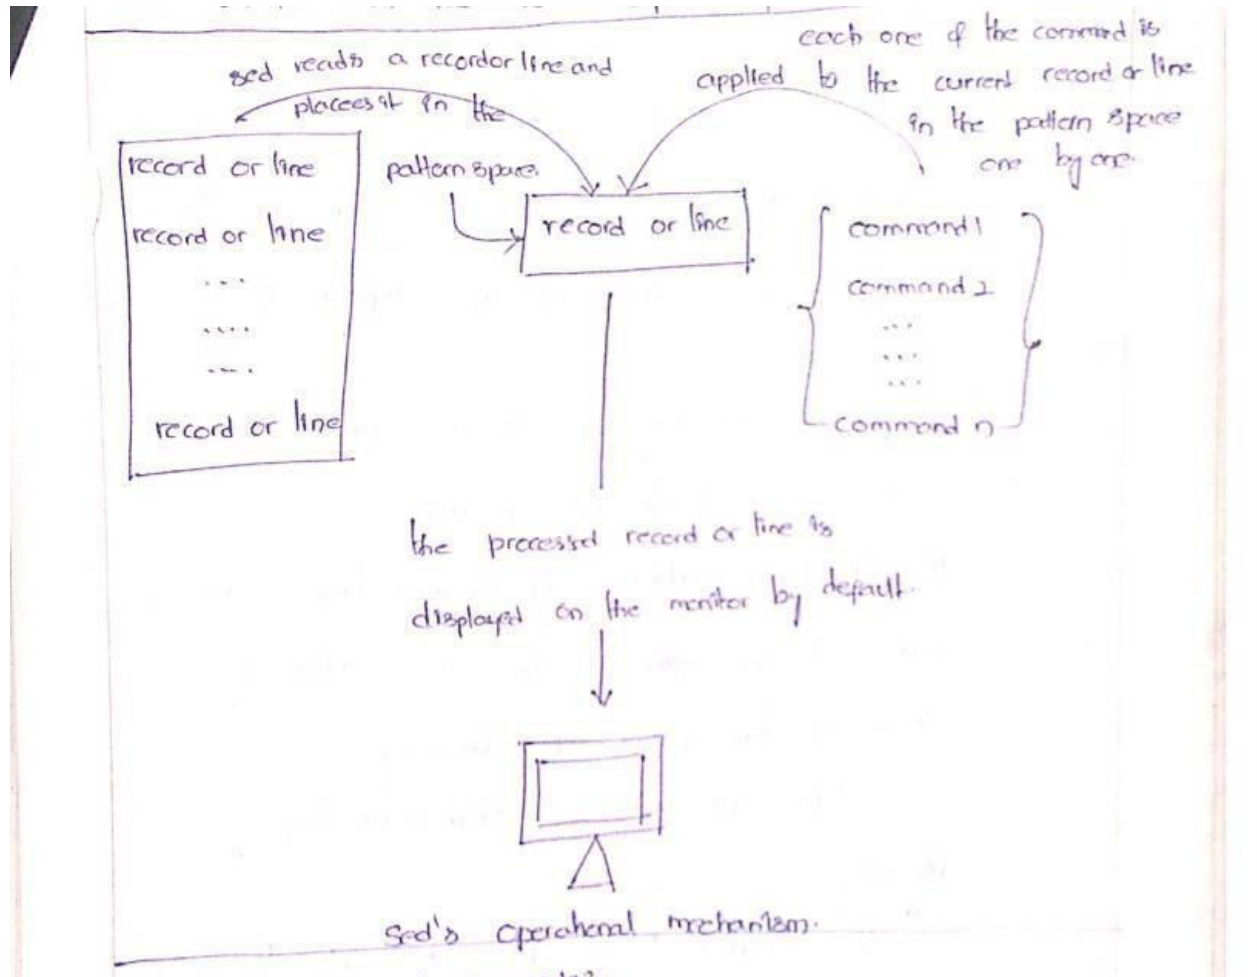 sed reads a record or line and
places it in the
pattern space.
each one of the command is
applied to the current record or line
in the pattern space
one by one.
record or line
record or line
...
....
....
record or line
record or line
command 1
command 2
...
...
...
command n
the processed record or line is
displayed on the monitor by default.
Sed's operational mechanism.